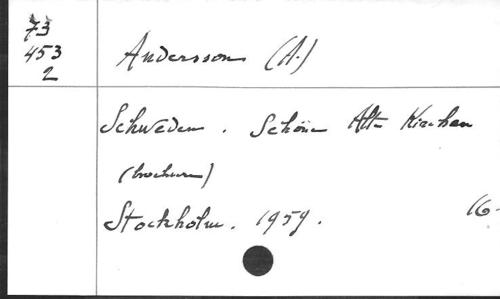 73
453
2
Andersson (A.)
Schweden. Schöne Alte Kirchen
(brochure)
Stockholm. 1959. 16-